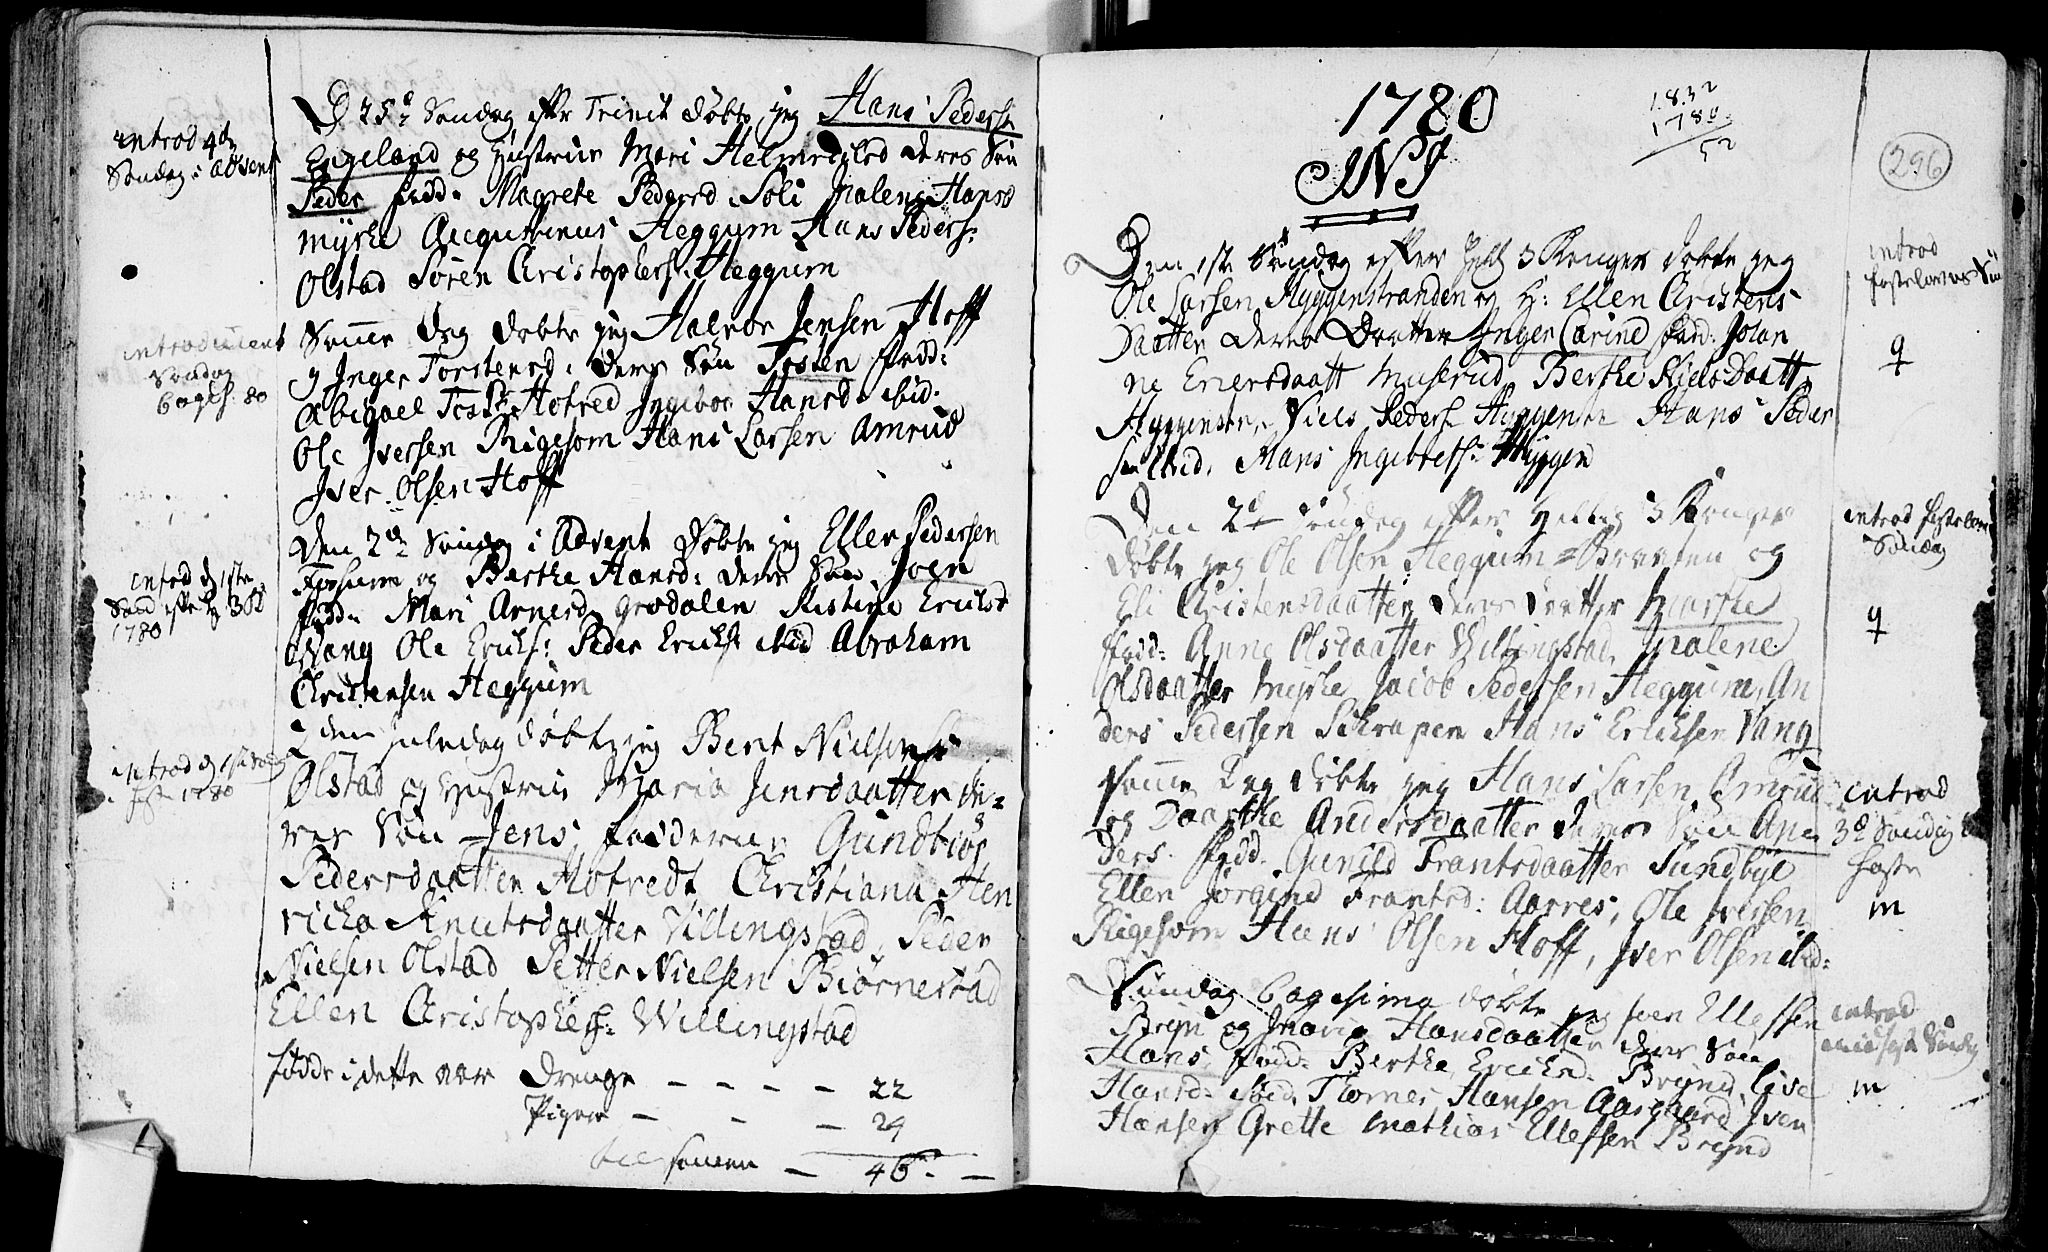 introd 4de
Søndag i Advent
D 25de Søndag efter Trinit døbte jeg Hans Peders:
Eegeland og Hustrue Mari Helmersd deres Søn
Peder fadd: Magrete Pedersd Soli Malene Hansd
Myhre Augustinus Heggum Hans Peders:
Olstad Søren Christophers: Heggum
introducient
Søndag
6 ages: 80
Samme Dag døbte jeg Halvor Jensen Hoff
og Inger Torstensd: deres Søn Tosten fadd:
Abigael Hotved Ingebor Hansd ibid:
Ole Iversen Rigesom Hans Larsen Amrud
Iver Olsen Hoff
introd d 1ste
Sønd efter H 3 K
1780
Den 2den Søndag i Advent døbte jeg Ellev Pedersen
Fossum og Berthe Hansd: deres Søn Joen
fadd: Mari Arnesd Grodalen Kistine Eriksd
Wang Ole Eriks: Peder Eriks: ibid Abraham
Christensen Heggum
introd d 1ste Søndag
fast 1780
2den Juledag døbte jeg Bent Nielsen
Olstad og Hustrue Maria Jensdaatter de=
res Søn Jens, fadderne Gundbiør
Pedersdaatter Hotvedt, Christiana Hen
richa Knutsdaatter Villingstad, Peder
Nielsen Olstad Petter Nielsen Biørnestad
Ellen Christophers: Willingstad
fødde i dette aar Drenge - - - - 22
Piger - - - 24
tilsammen - 46.

1780
INJ
1832
1780
52
296
Den 1ste Søndag efter Hell 3 Konger døbte jeg
Ole Larsen Hyggenstranden og H: Ellen Christens
Daatter deres Daatter Inger Carine fadd: Johan
ne Enersdaatt Muserud, Berthe Nielsdaatt
Hyggenstr, Niels Peders Hyggenstr Hans Peder
sen ibid, Hans Ingebrets: Hyggen
introd
fastelavens Søn
q
Den 2den Søndag efter Hellig 3 Konger
døbte jeg Ole Olsen Heggum=Braaten og
Eli Christensdaatter deres Datter Marthe
fadd: Anne Olsdaatter Willingstad, Malene
Olsdaatter Myhre Jacob Pedersen Heggum, An
ders Pedersen Schrapen Hans Eriksen Vang
introd fastelavn
Søndag
q
Samme Dag døbte jeg Hans Larsen Omrud
og Dorthe Andersdaatter deres Søn An=
ders. fadd. Gunild Frantsdaatter Sundbye
Ellen Jørgine Frantsd: Aarres, Ole Iversen
Rigesom Hans Olsen Hoff, Iver Olsen ibid:
introd
3de Søndag i
faste
m
Søndag 6agesima døbte jeg Joen Ellefsen
Bryn og Maria Hansdaatter deres Søn
Hans, fadd: Berthe Ericksd: Brynd, Live
Hansd: ibid, Tormes Hansen Aasgaard, Iver
Hansen Grette Mathias Ellefsen Brynd
introd
midfaste Søndag
m